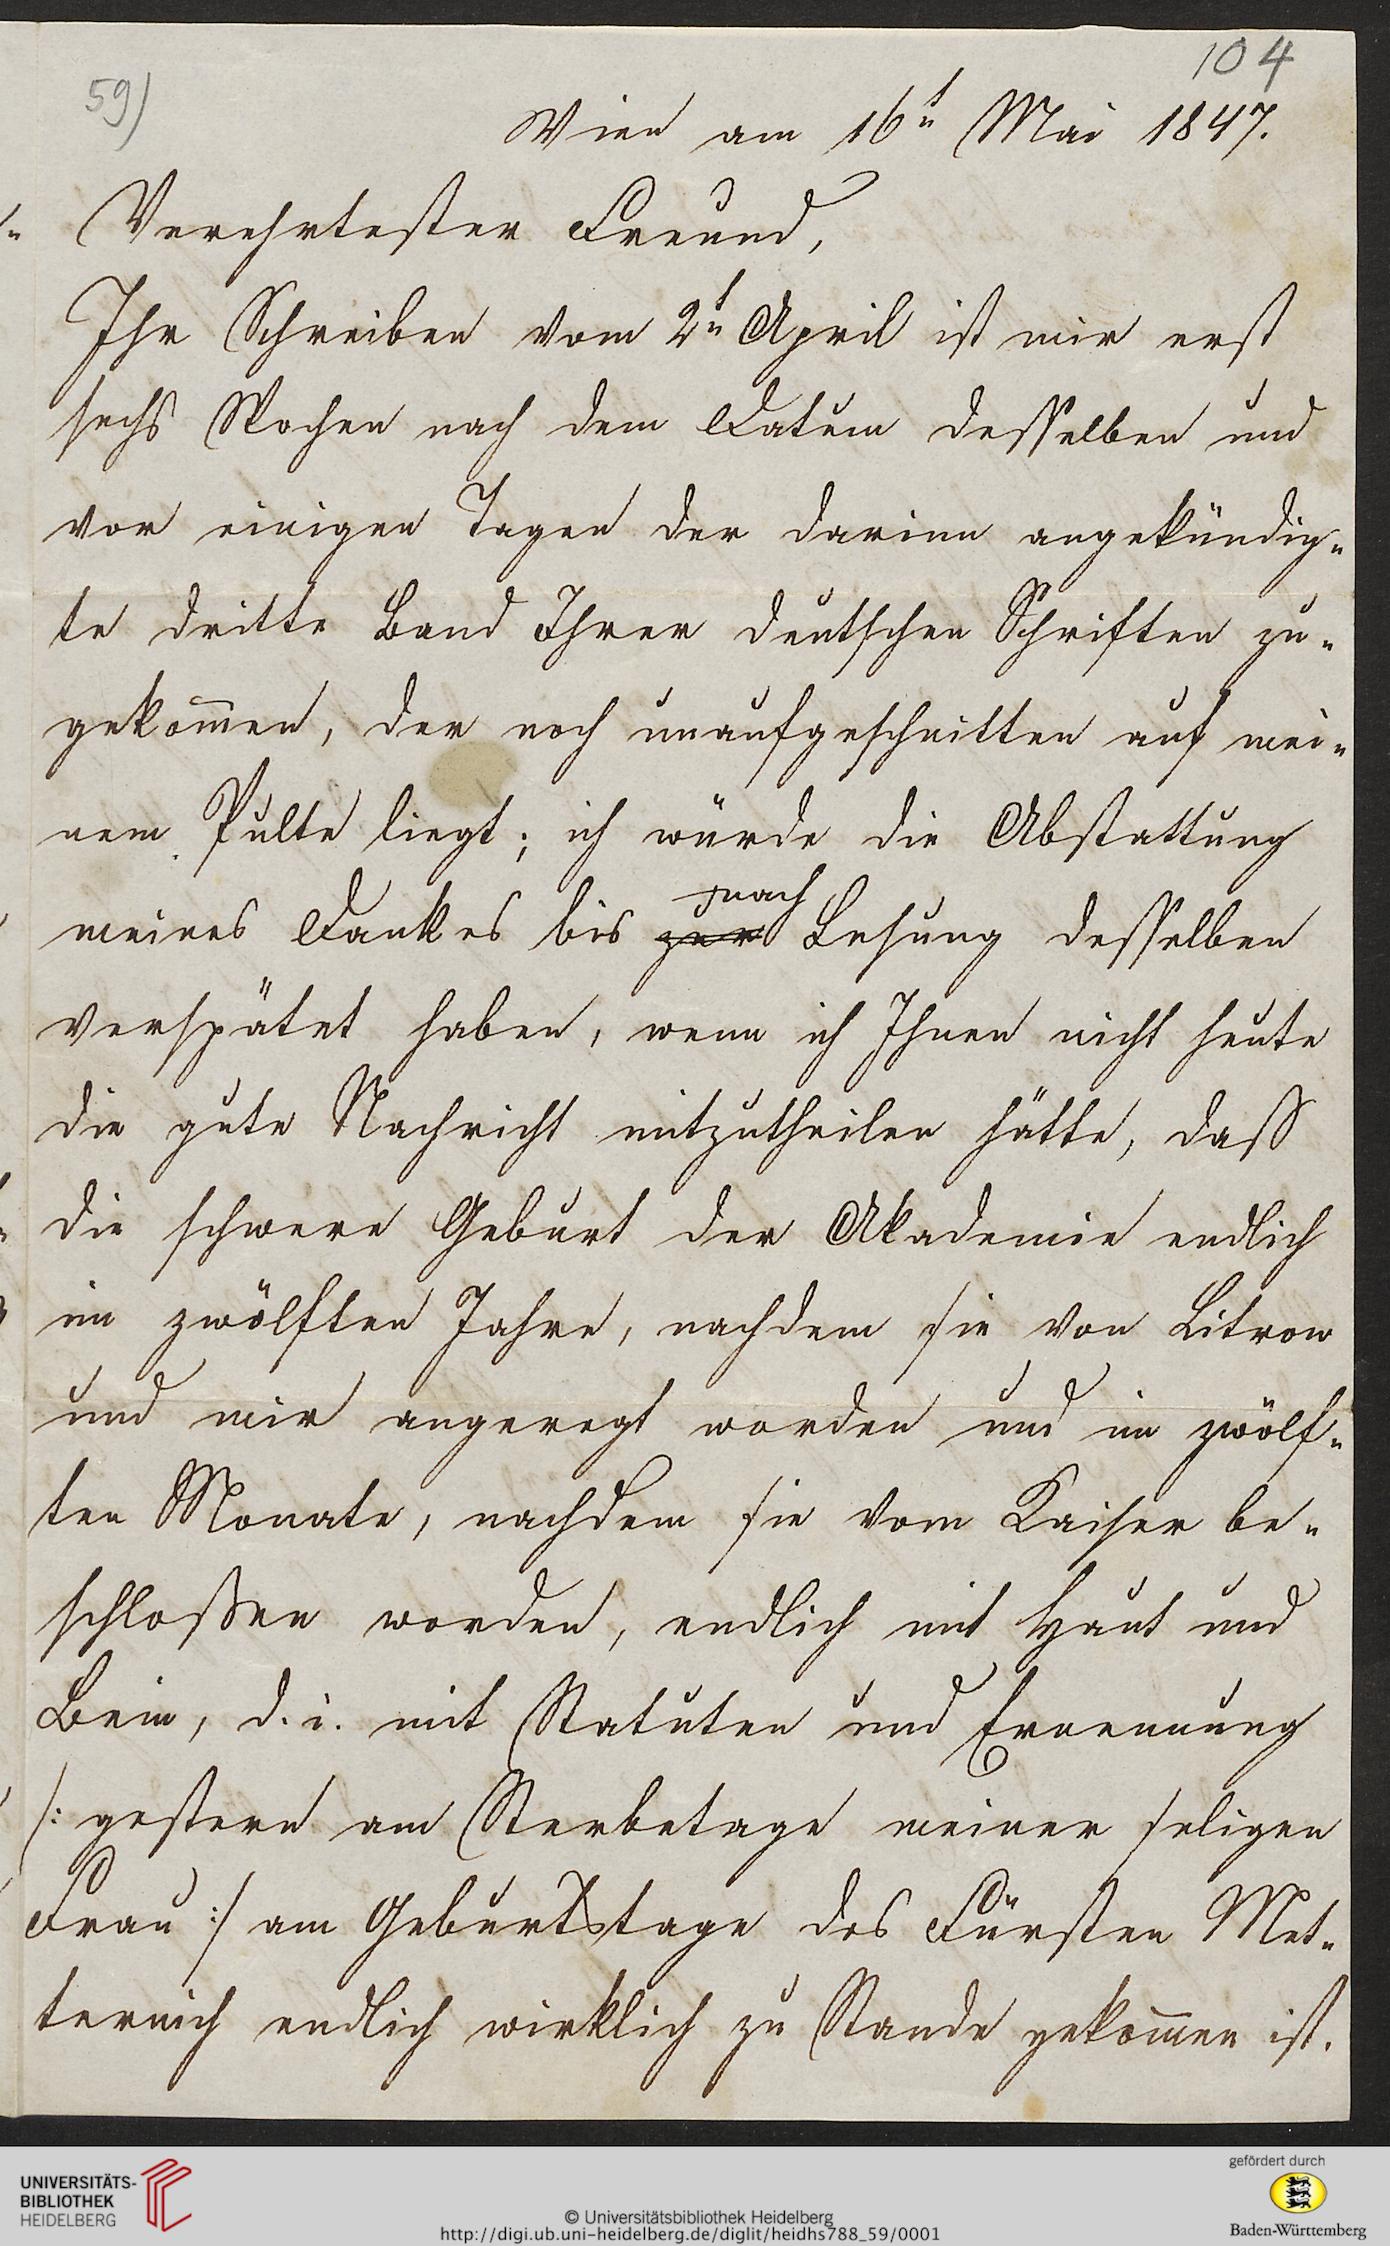 104
59)
Wien am 16t Mai 1847.
Verehrtester Freund,
Ihr Schreiben vom 2t April ist mir erst
sechs Wochen nach dem Datum desselben und
vor einigen Tagen der darinn angekündig=
te dritte Band Ihrer deutschen Schriften zu=
gekom̅en, der noch unaufgeschnitten auf mei=
nem Pulte liegt; ich würde die Abstattung
nach
meines Dankes bis zur Lesung desselben
verspätet haben, wenn ich Ihnen nicht heute
die gute Nachricht mitzutheilen hätte, dass
die schwere Geburt der Akademie endlich
im zwölften Jahre, nachdem sie von Litrow
und mir angeregt worden und im zwölf=
ten Monate, nachdem sie vom Kaiser be=
schloßen worden, endlich mit Haut und
Bein, d. i. mit Statuten und Ernennung
/: gestern am Sterbetage meiner seligen
Frau :/ am Geburtstage des Fürsten Met=
ternich endlich wirklich zu Stande gekom̅en ist.
UNIVERSITÄTS-
BIBLIOTHEK
HEIDELBERG
© Universitätsbibliothek Heidelberg
http://digi.ub.uni-heidelberg.de/diglit/heidhs788_59/0001
gefördert durch
Baden-Württemberg